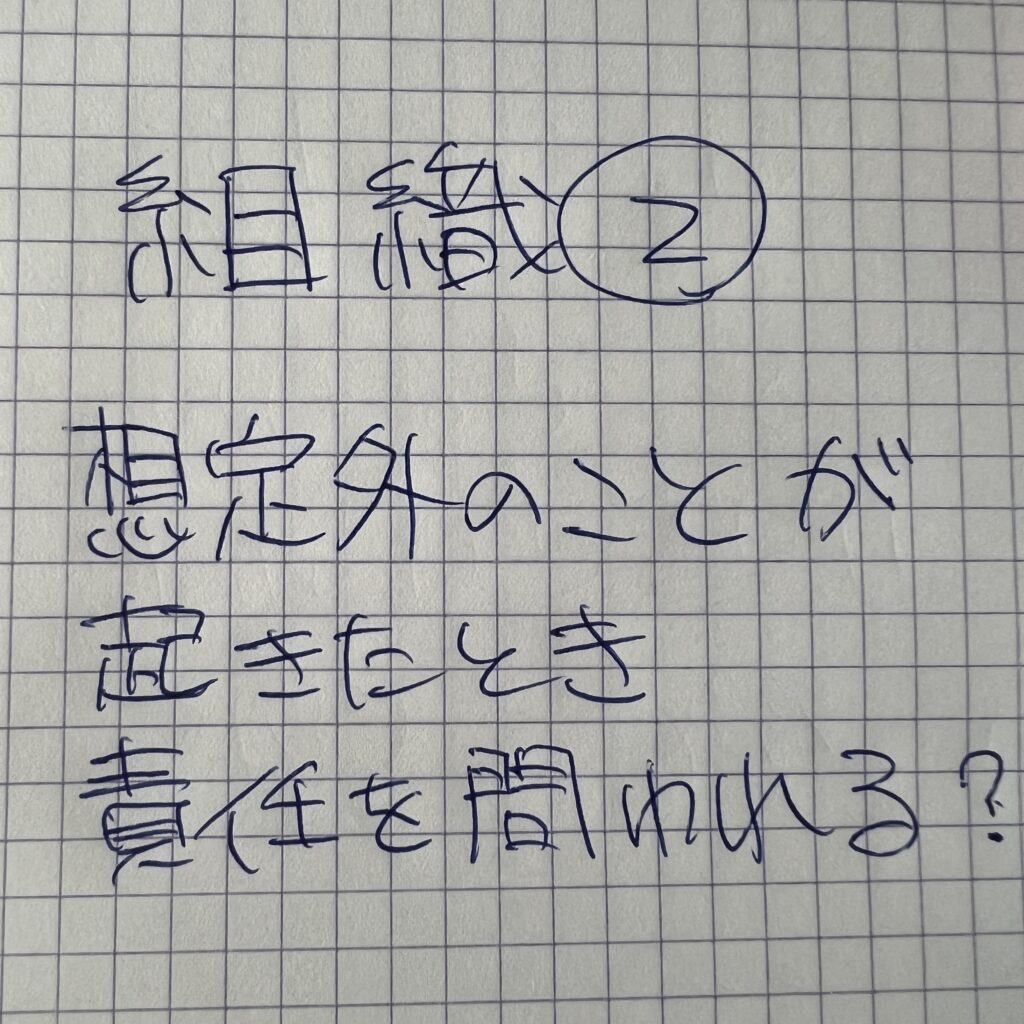 組織②
想定外のことが
起きたとき
責任を問われる?